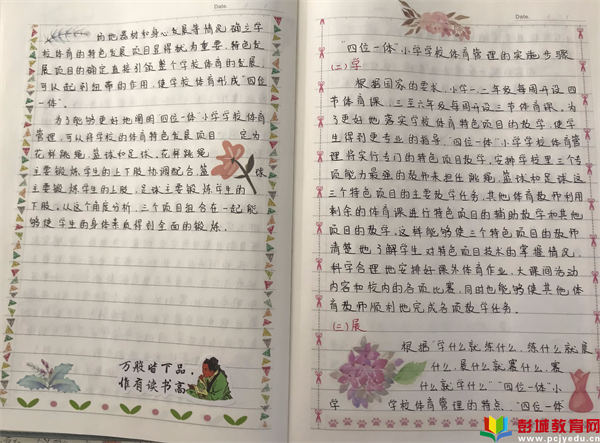 Date.
的地器材和身心发展等情况,确立学
校体育的特色发展项目显得极为重要。特色发
展项目的确定直接引领整个学校体育的发展,
可以起到纽带的作用,使学校体育形成"四位
一体"。
为了能够更好地阐明"四位一体"小学学校体育
管理,可以将学校的体育特色发展项目 定为
花样跳绳、篮球和足球。花样跳绳
主要锻炼学生的上下肢协调配合,篮 球
主要锻炼学生的上肢,足球主要锻炼学生的
下肢,从这个角度分析,三个项目组合在一起能
够使学生的身体素质得到全面的锻炼。
万般皆下品,
惟有读书高
Date.
"四位一体"小学学校体育管理的实施步骤
(一)学
根据国家的要求,小学一、二年级每周开设四
节体育课,三至六年级每周开设三节体育课。为
了更好地落实学校体育特色项目的教学,使学
生得到更专业的指导,"四位一体"小学学校体育管
理将实行专门的特色项目教学,安排学校里三个专
项能力最强的教师来担任跳绳、篮球和足球这
三个特色项目的主要教学任务,其他体育教师利用
剩余的体育课进行特色项目的辅助教学和其他
项目的教学。这样能够使三个特色项目的教师
清楚地了解学生对特色项目技术的掌握情况,
科学合理地安排好课外体育作业、大课间活动
内容和校内的各项比赛,同时也能够使其他体
育教师顺利地完成各项教学任务。
(二)展
根据"学什么就练什么,练什么就展
什么,展什么就赛什么,赛
什么就学什么""四位一体"小
学 学校体育管理的特点,"四位一体"
彭城教育网
www.pcjyedu.cn